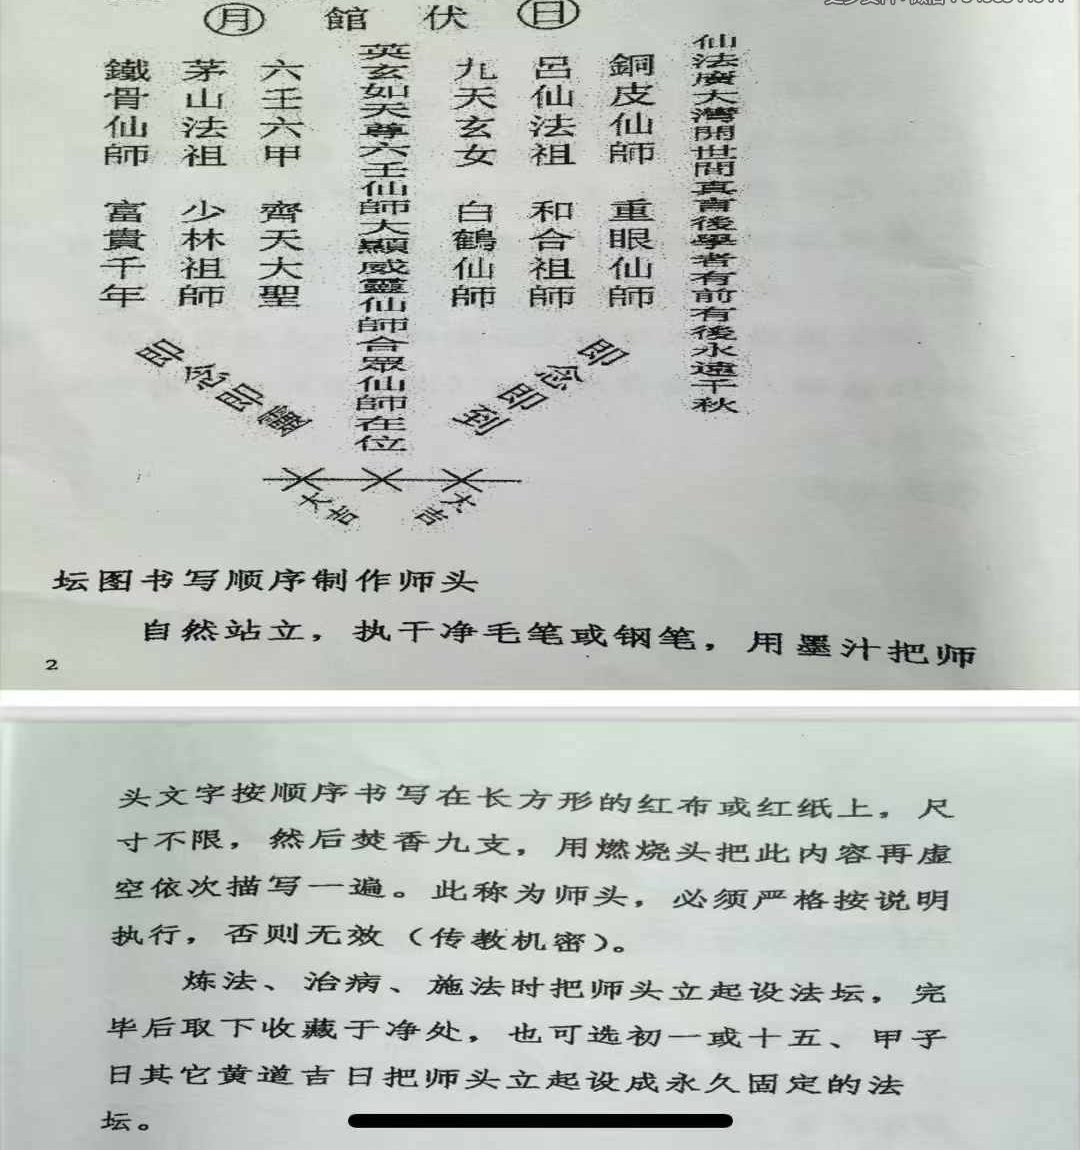 月 館 伏 日
仙法廣大灣開世間真言後學者有前有後永遠千秋
銅皮仙師 重眼仙師
呂仙法祖 和合祖師
九天玄女 白鶴仙師
英玄如天尊六壬仙師大顯威靈仙師合眾仙師在位
六壬六甲 齊天大聖
茅山法祖 少林祖師
鐵骨仙師 富貴千年
即念即到
即念即靈
大吉
大吉
坛图书写顺序制作师头
自然站立，执干净毛笔或钢笔，用墨汁把师
2
头文字按顺序书写在长方形的红布或红纸上，尺
寸不限，然后焚香九支，用燃烧头把此内容再虚
空依次描写一遍。此称为师头，必须严格按说明
执行，否则无效（传教机密）。
炼法、治病、施法时把师头立起设法坛，完
毕后取下收藏于净处，也可选初一或十五、甲子
日其它黄道吉日把师头立起设成永久固定的法
坛。